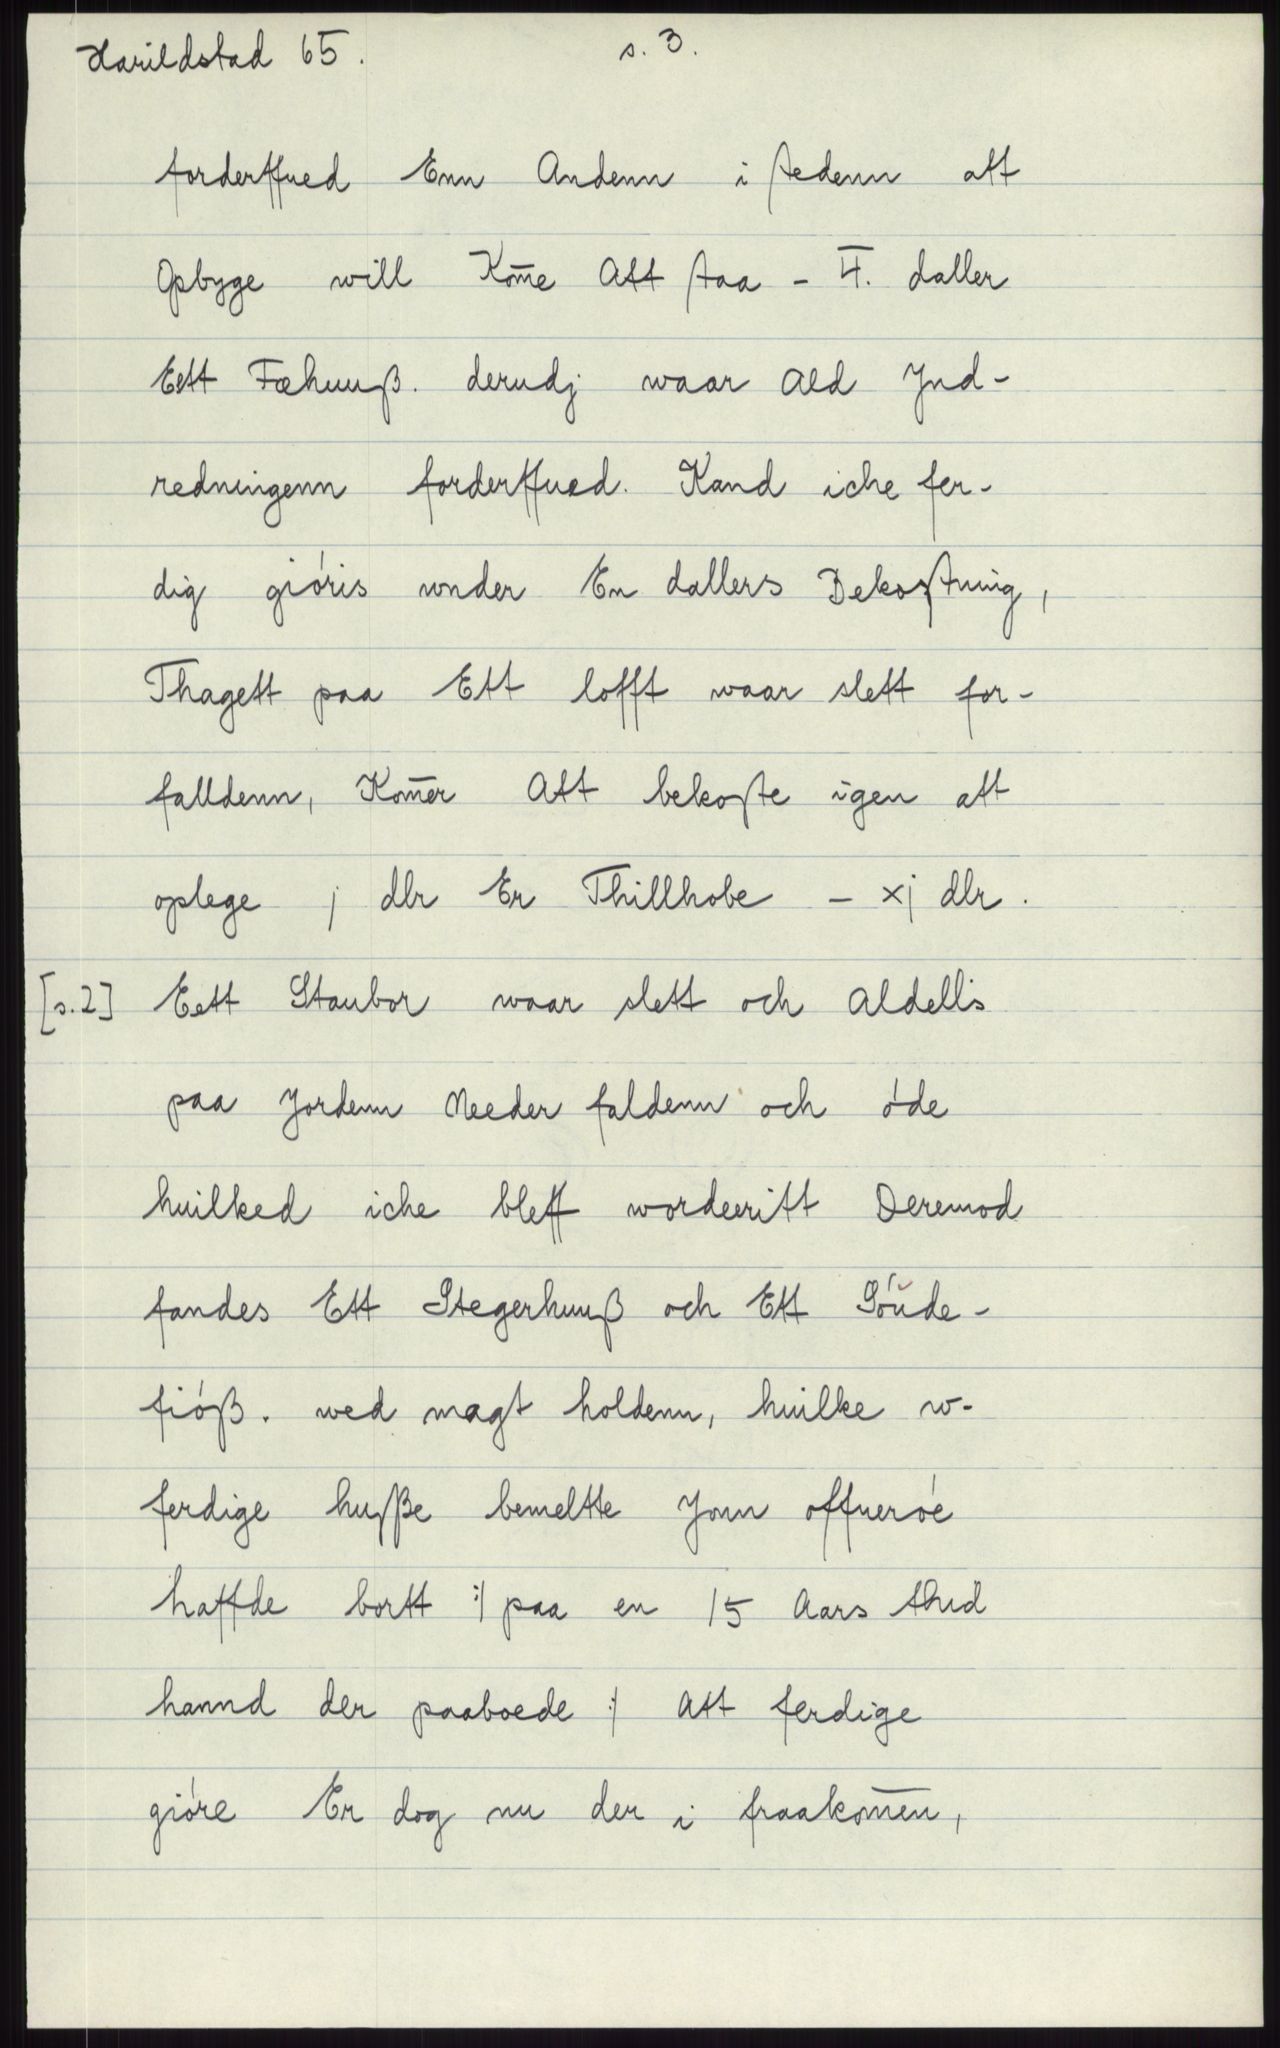 Harildstad 65. s. 3.
forderffued Enn Andenn i stedenn att
Opbyge will Kom̄e Att staa - 4. daller
Eett Fæhuuß. derudj waar Ald Ynd-
redningenn forderffued. Kand iche fer-
dig gióris wnder En dallers Bekostning,
Thagett paa Ett lofft waar slett for-
falldenn, Kom̄er Att bekoste igen att
oplege j dlr Er Thillhobe - xj dlr.
[s.2] Eett Staubor waar slett och Aldellis
paa Jordenn Needer faldenn och óde
huilked iche bleff worderritt Deremod
fandes Ett Stegerhuuß och Ett Sóŭde-
fióß. wed magt holdenn, huilke w-
ferdige husße bemeltte Jonn offueróe
haffde bortt :/ paa en 15 Aars thid
hannd der paaboede :/ Att ferdige
gióre Er dog nu der i fraakom̄en,